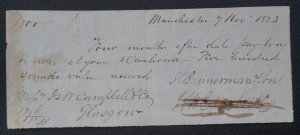 £500 Manchester 7 Nov 1823
Four months after date pay to our
order at your Warehouse Five hundred
pounds value received
Messrs J & W Campbell & Co Bannerman & Sons
Glasgow